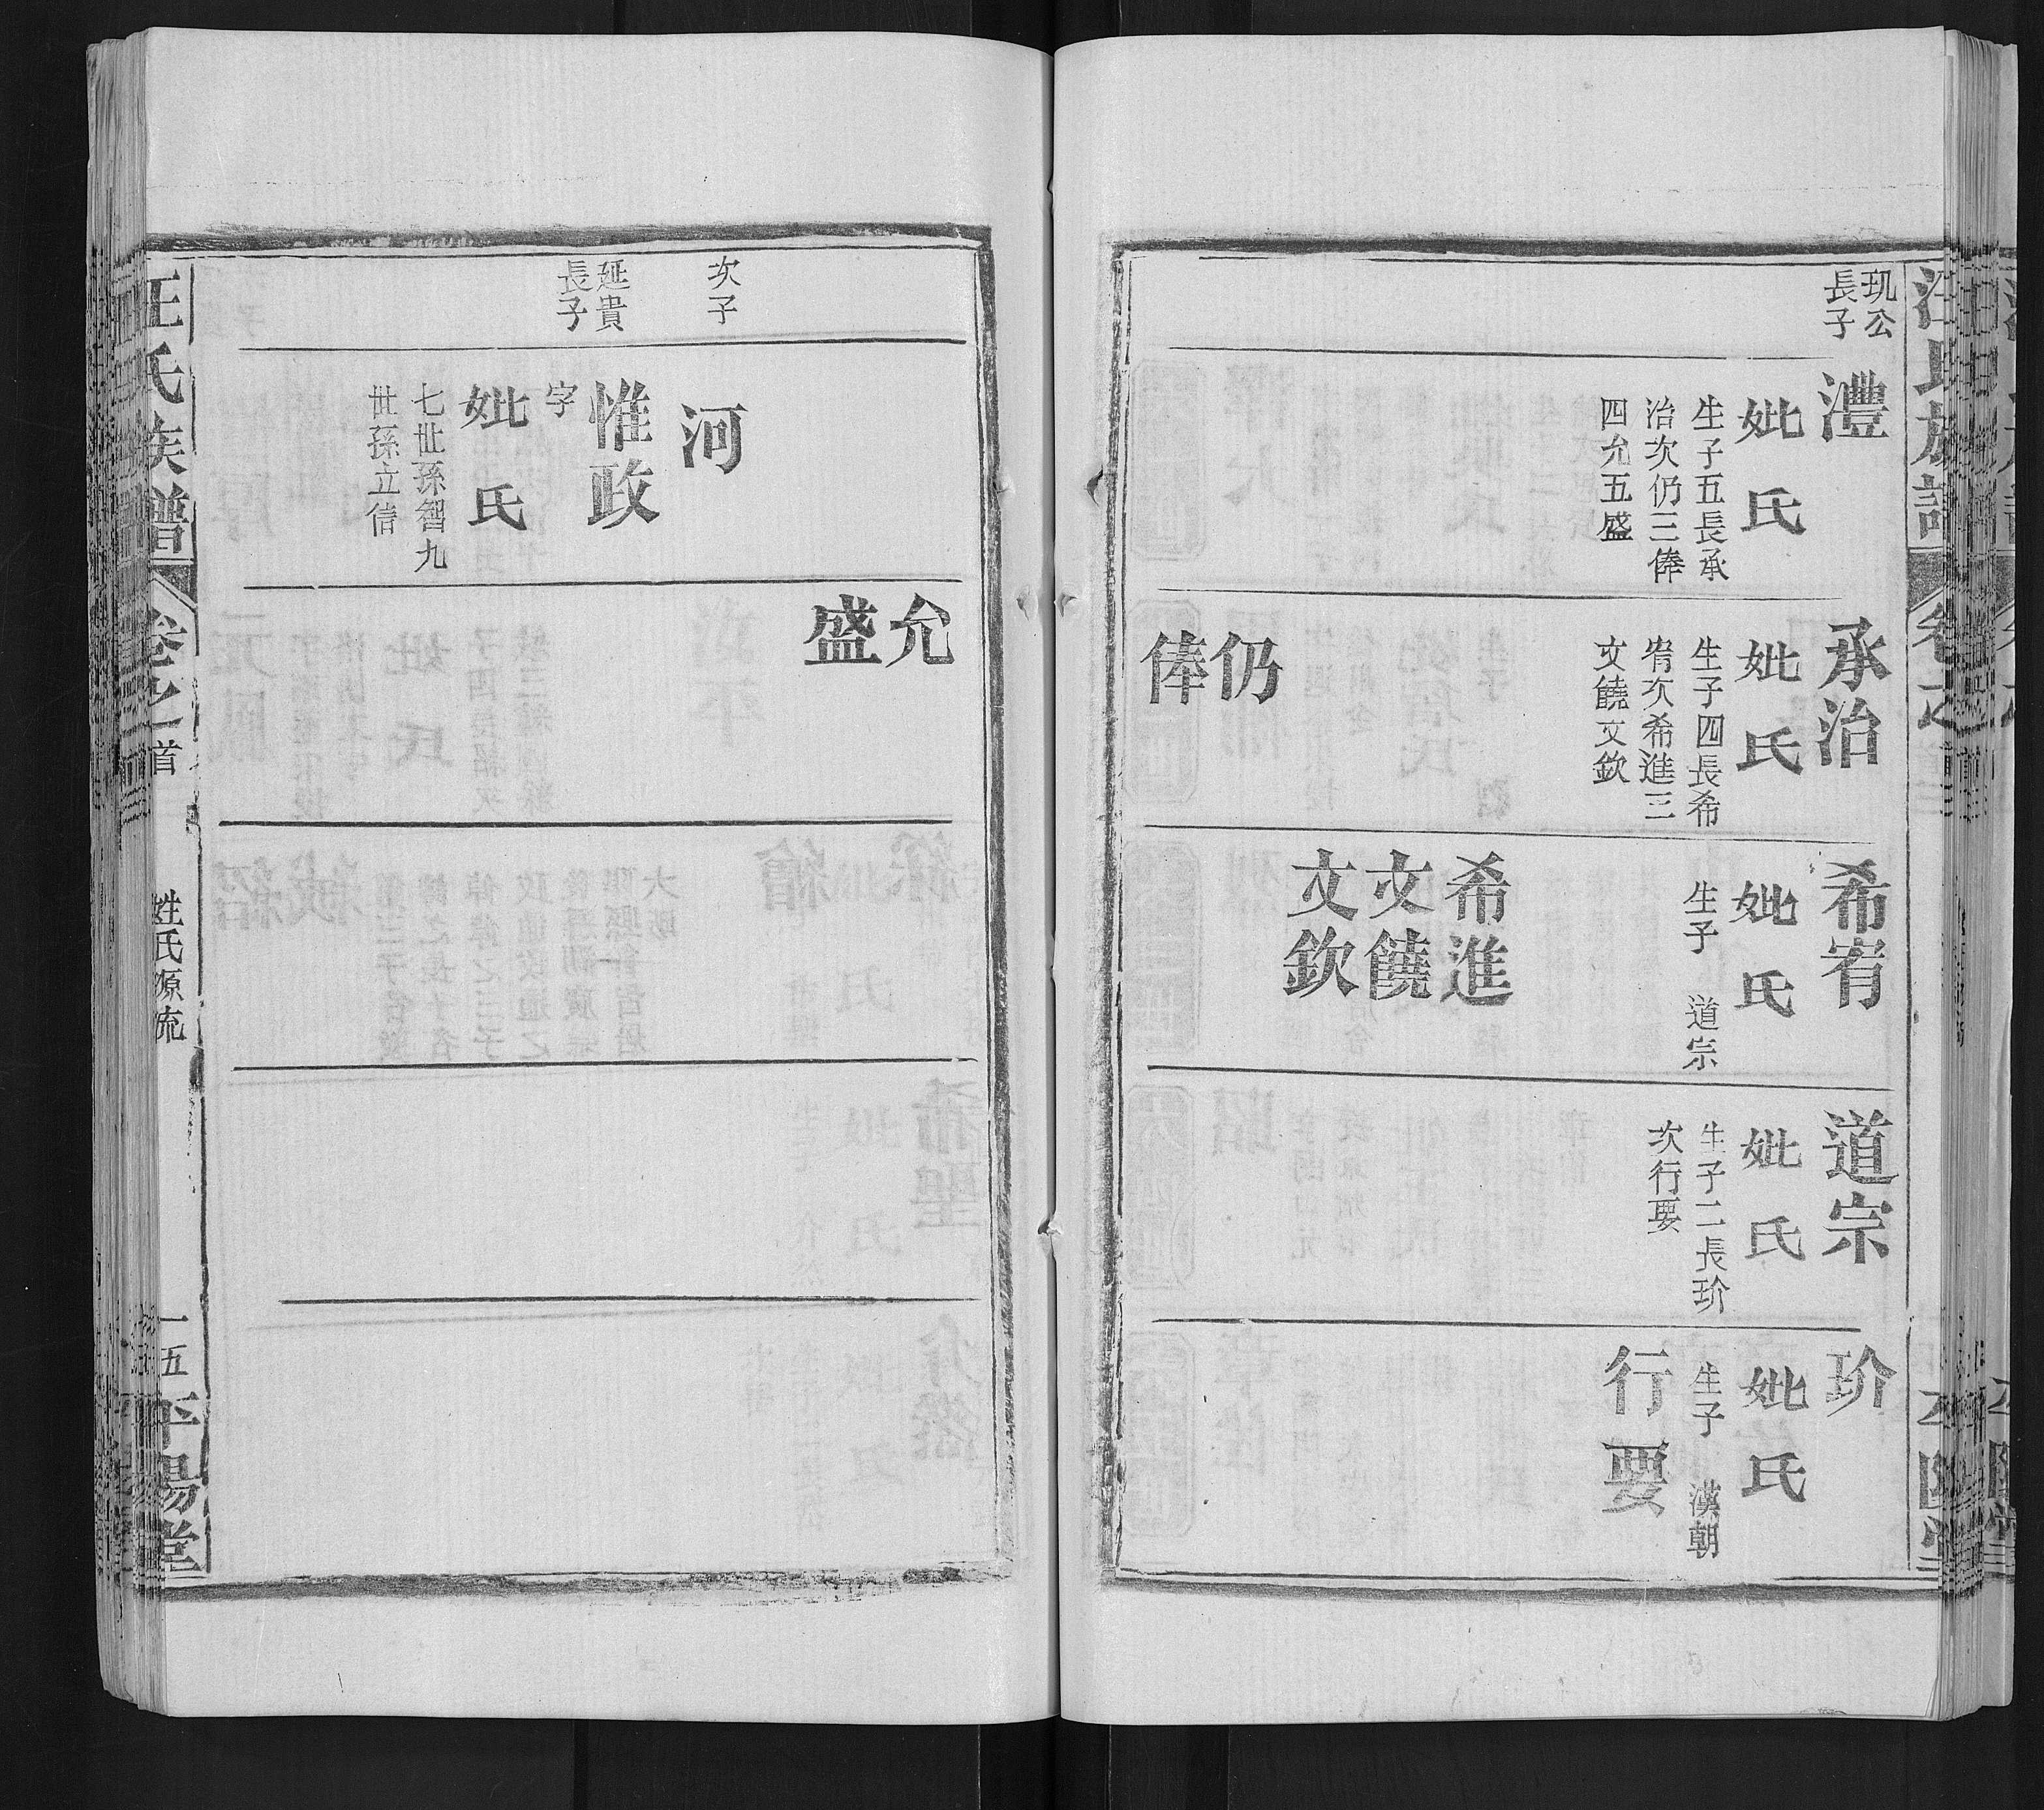 汪氏族譜
卷之
平陽堂
玑公
長子
灃
妣氏
生子五長承
治次仍三俸
四允五盛
承治
妣氏
生子四長希
宥次希進三
文饒文欽
仍
俸
希宥
妣氏
生子 道宗
希進
文饒
文欽
道宗
妣氏
生子二長玠
次行要
玠
妣氏
生子 漢朝
行要
次子
延貴
長子
河
惟政
字
妣氏
七世孫智九
世孫立信
允
盛
汪氏族譜
卷之首
姓氏源流
一五
平陽堂